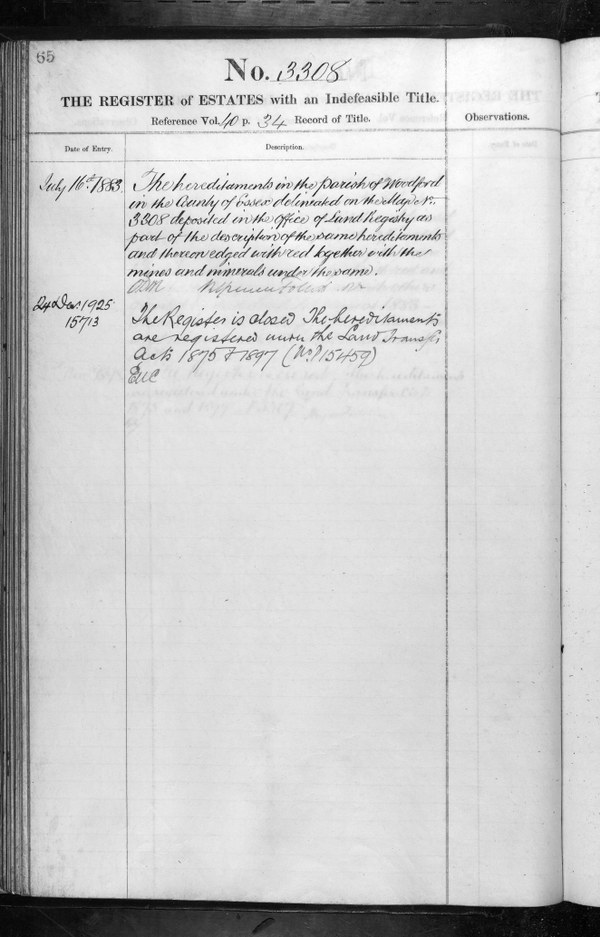 65
No. 3308
THE REGISTER of ESTATES with an Indefeasible Title.
Reference Vol. 40 p. 34 Record of Title.
Observations.
Date of Entry.
Description.
July 16th 1883
The hereditaments in the parish of Woodford
in the County of Essex delineated on the Map No.
3308 deposited in the office of Land Registry as
part of the description of the same hereditaments
and thereon edged with red together with the
mines and minerals under the same.
24 Dec. 1925
15713
The Register is closed The hereditaments
are registered under the Land Transfer
Acts 1875 & 1897 (No. P15459)